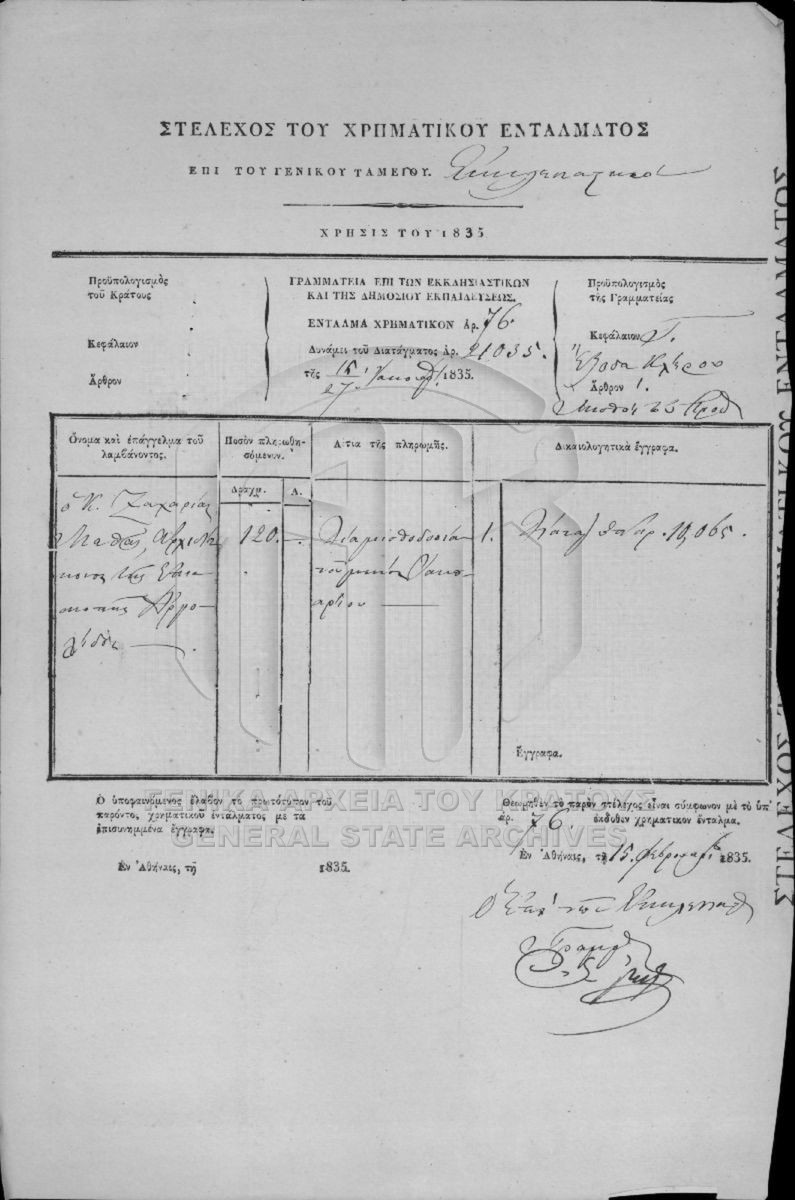 ΣΤΕΛΕΧΟΣ ΤΟΥ ΧΡΗΜΑΤΙΚΟΥ ΕΝΤΑΛΜΑΤΟΣ
ΕΠΙ ΤΟΥ ΓΕΝΙΚΟΥ ΤΑΜΕΙΟΥ.
ΧΡΗΣΙΣ ΤΟΥ 1835
Προϋπολογισμὸς
τοῦ Κράτους
Κεφάλαιον
Ἄρθρον
ΓΡΑΜΜΑΤΕΙΑ ΕΠΙ ΤΩΝ ΕΚΚΛΗΣΙΑΣΤΙΚΩΝ
ΚΑΙ ΤΗΣ ΔΗΜΟΣΙΟΥ ΕΚΠΑΙΔΕΥΣΕΩΣ.
ΕΝΤΑΛΜΑ ΧΡΗΜΑΤΙΚΟΝ ΑΡ. 76.
Δυνάμει τοῦ Διατάγματος Ἀρ. 21035.
τῆς 15/27 1835.
Προϋπολογισμὸς
τῆς Γραμματείας
Κεφάλαιον Γ.
Ἔξοδα Κλήρου
Ἄρθρον 1.
Ὄνομα καὶ ἐπάγγελμα τοῦ
λαμβάνοντος.
Ποσὸν πληρωθη-
σόμενον.
Δραχμ. Λ.
Αἰτία τῆς πληρωμῆς.
Δικαιολογητικὰ ἔγγραφα.
ὁ Κ. Ζαχαρίας
Μαθᾶς,
120. —
Διὰ μισθοδοσίαν
τοῦ μηνὸς Ἰανου-
αρίου
1. 10,065.
τῆς Ἐπι-
σκοπῆς Ἀργο-
λίδος
Ἔγγραφα.
Ὁ ὑποφαινόμενος ἔλαβον τὸ πρωτότυπον τοῦ
παρόντος χρηματικοῦ ἐντάλματος με τὰ
ἐπισυνημμένα ἔγγραφα.
Ἐν Ἀθήναις, τῇ 1835.
Θεωρηθὲν τὸ παρὸν στέλεχος εἶναι σύμφωνον μὲ τὸ ὑπ'
ἀρ. 76. ἐκδοθὲν χρηματικὸν ἔνταλμα.
Ἐν Ἀθήναις, τῇ 15. Φεβρουαρίου 1835.
ΓΕΝΙΚΑ ΑΡΧΕΙΑ ΤΟΥ ΚΡΑΤΟΥΣ
GENERAL STATE ARCHIVES
ΣΤΕΛΕΧΟΣ ΤΟΥ ΧΡΗΜΑΤΙΚΟΥ ΕΝΤΑΛΜΑΤΟΣ